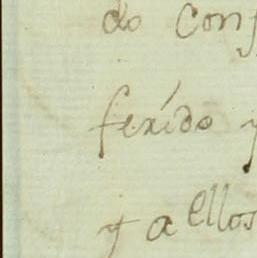 do conf
ferido y
y a ellos